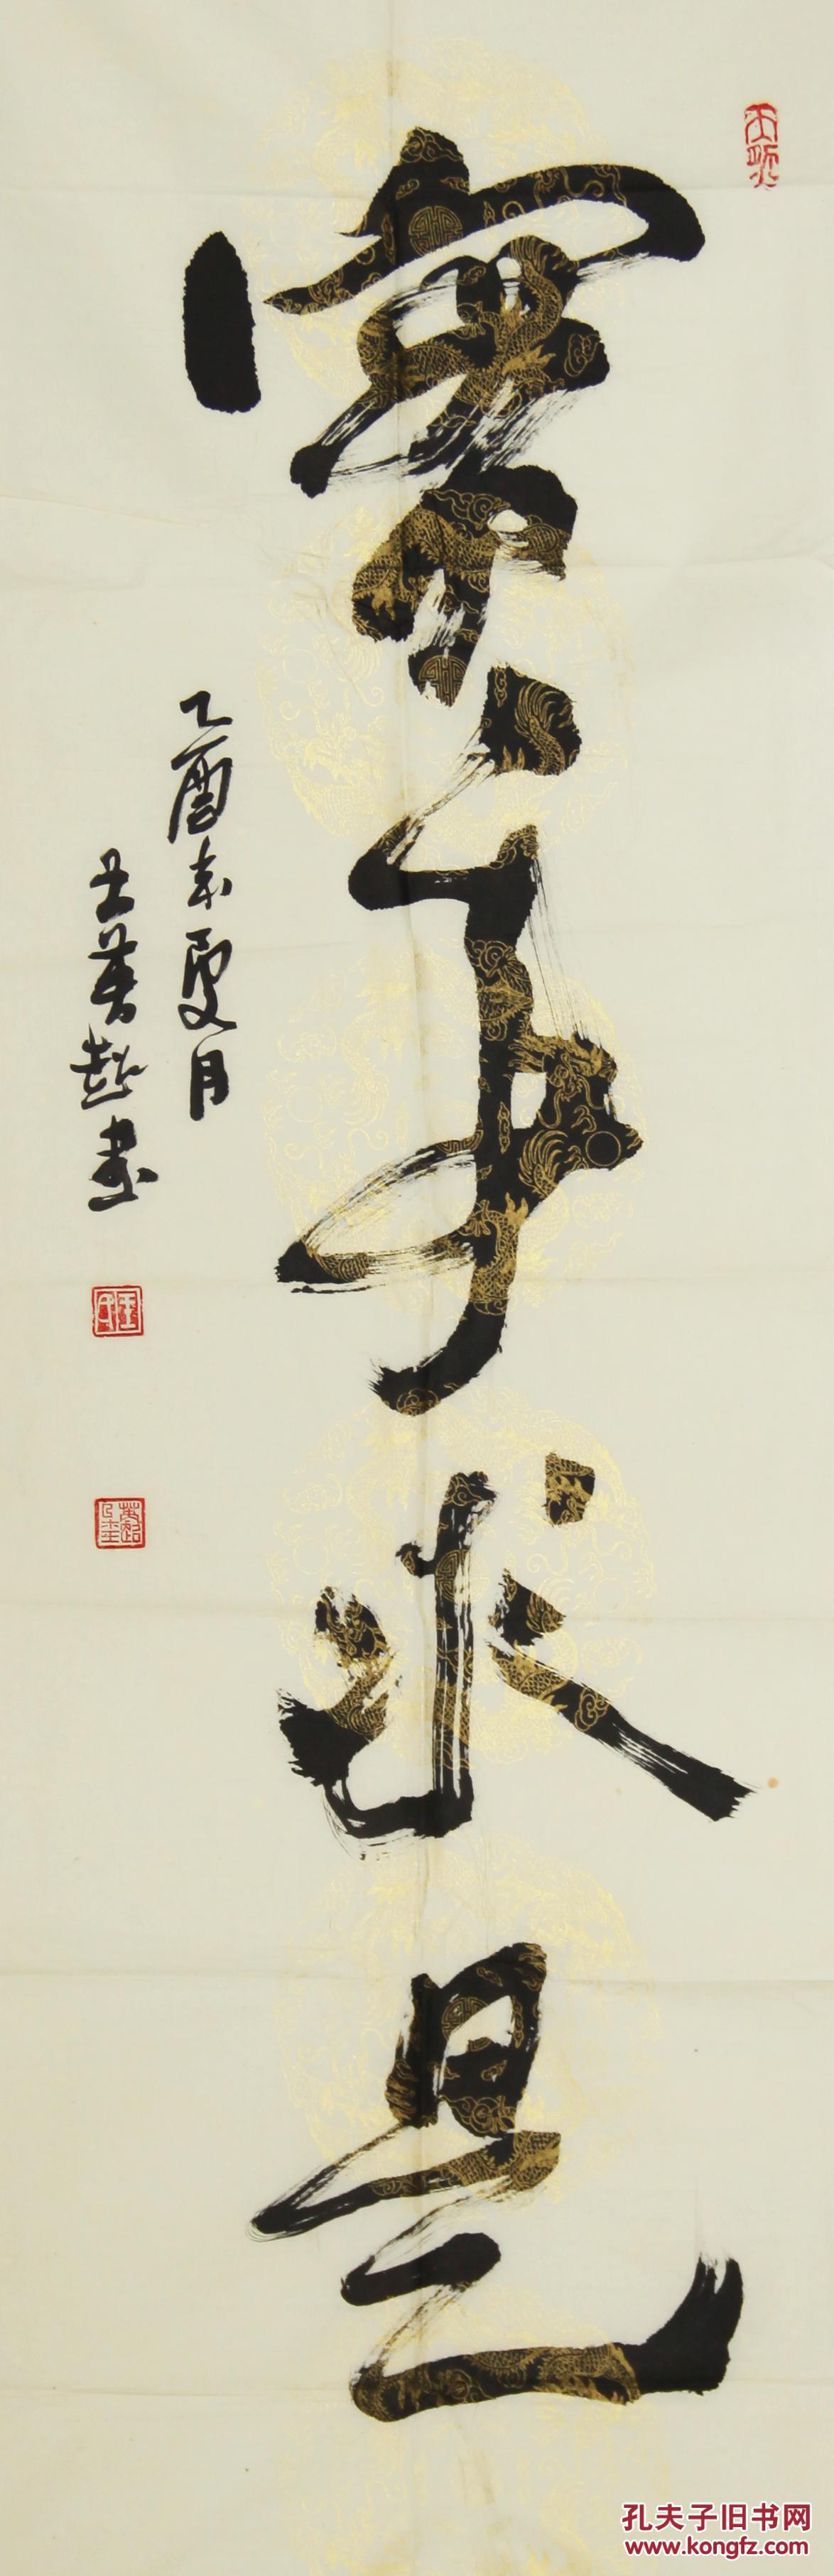 實事求是
乙酉年夏月
王黄超書
孔夫子旧书网
www.kongfz.com